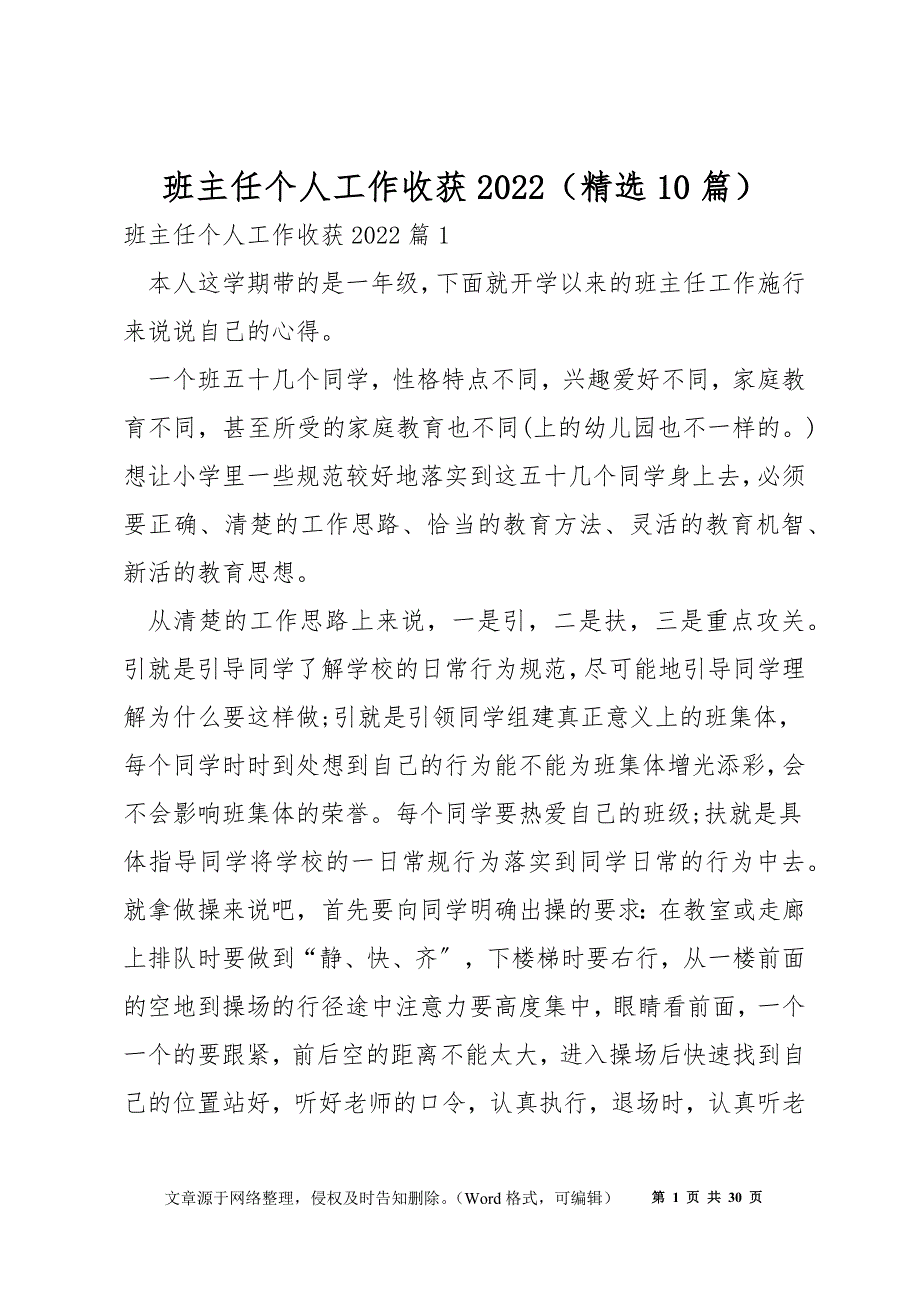 班主任个人工作收获2022（精选10篇）
班主任个人工作收获2022篇1
本人这学期带的是一年级，下面就开学以来的班主任工作施行
来说说自己的心得。
一个班五十几个同学，性格特点不同，兴趣爱好不同，家庭教
育不同，甚至所受的家庭教育也不同(上的幼儿园也不一样的。)
想让小学里一些规范较好地落实到这五十几个同学身上去，必须
要正确、清楚的工作思路、恰当的教育方法、灵活的教育机智、
新活的教育思想。
从清楚的工作思路上来说，一是引，二是扶，三是重点攻关。
引就是引导同学了解学校的日常行为规范，尽可能地引导同学理
解为什么要这样做;引就是引领同学组建真正意义上的班集体，
每个同学时时到处想到自己的行为能不能为班集体增光添彩，会
不会影响班集体的荣誉。每个同学要热爱自己的班级;扶就是具
体指导同学将学校的一日常规行为落实到同学日常的行为中去。
就拿做操来说吧，首先要向同学明确出操的要求：在教室或走廊
上排队时要做到“静、快、齐〞，下楼梯时要右行，从一楼前面
的空地到操场的行径途中注意力要高度集中，眼睛看前面，一个
一个的要跟紧，前后空的距离不能太大，进入操场后快速找到自
己的位置站好，听好老师的口令，认真执行，退场时，认真听老
文章源于网络整理，侵权及时告知删除。（Word格式，可编辑） 第 1 页 共 30 页